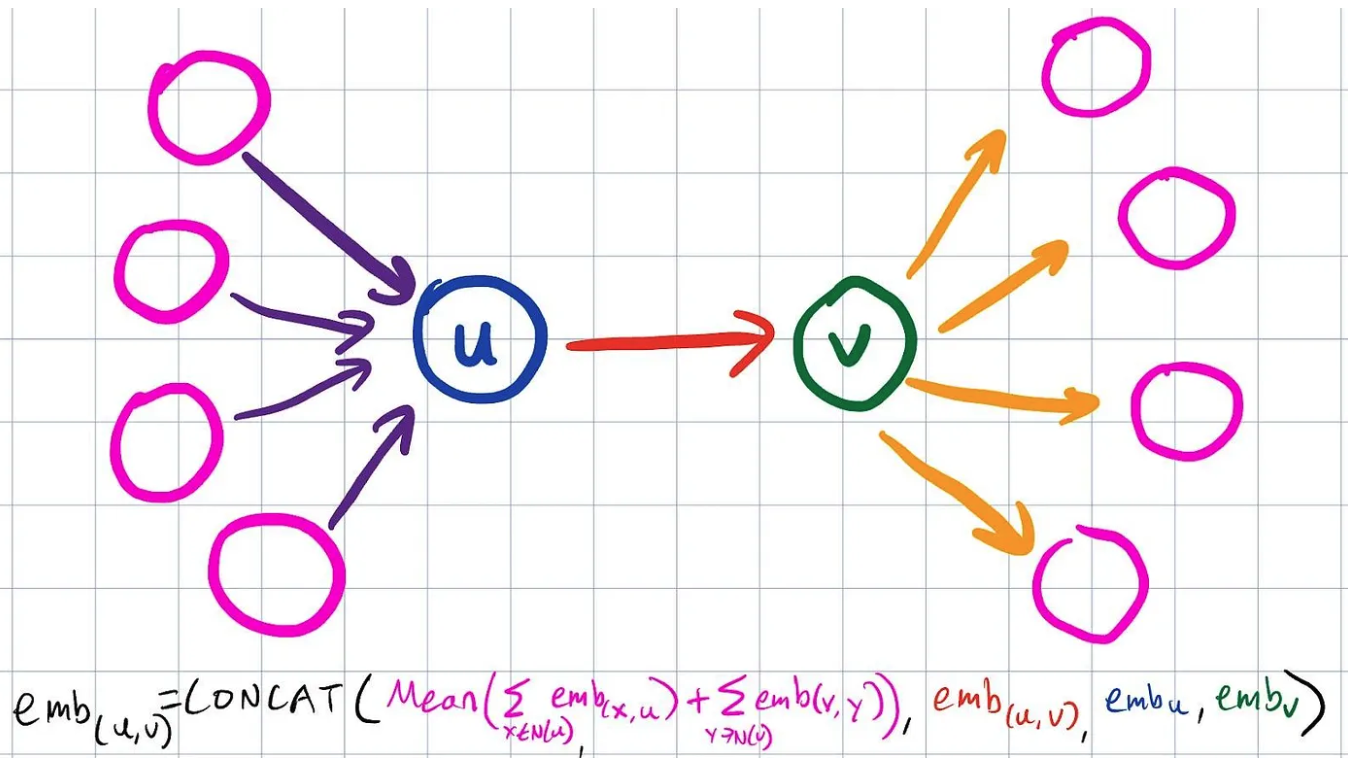 u
v
emb(u,v) = CONCAT(Mean(∑x∈N(u) emb(x,u) + ∑y∋N(v) emb(v,y)), emb(u,v), embu, embv)